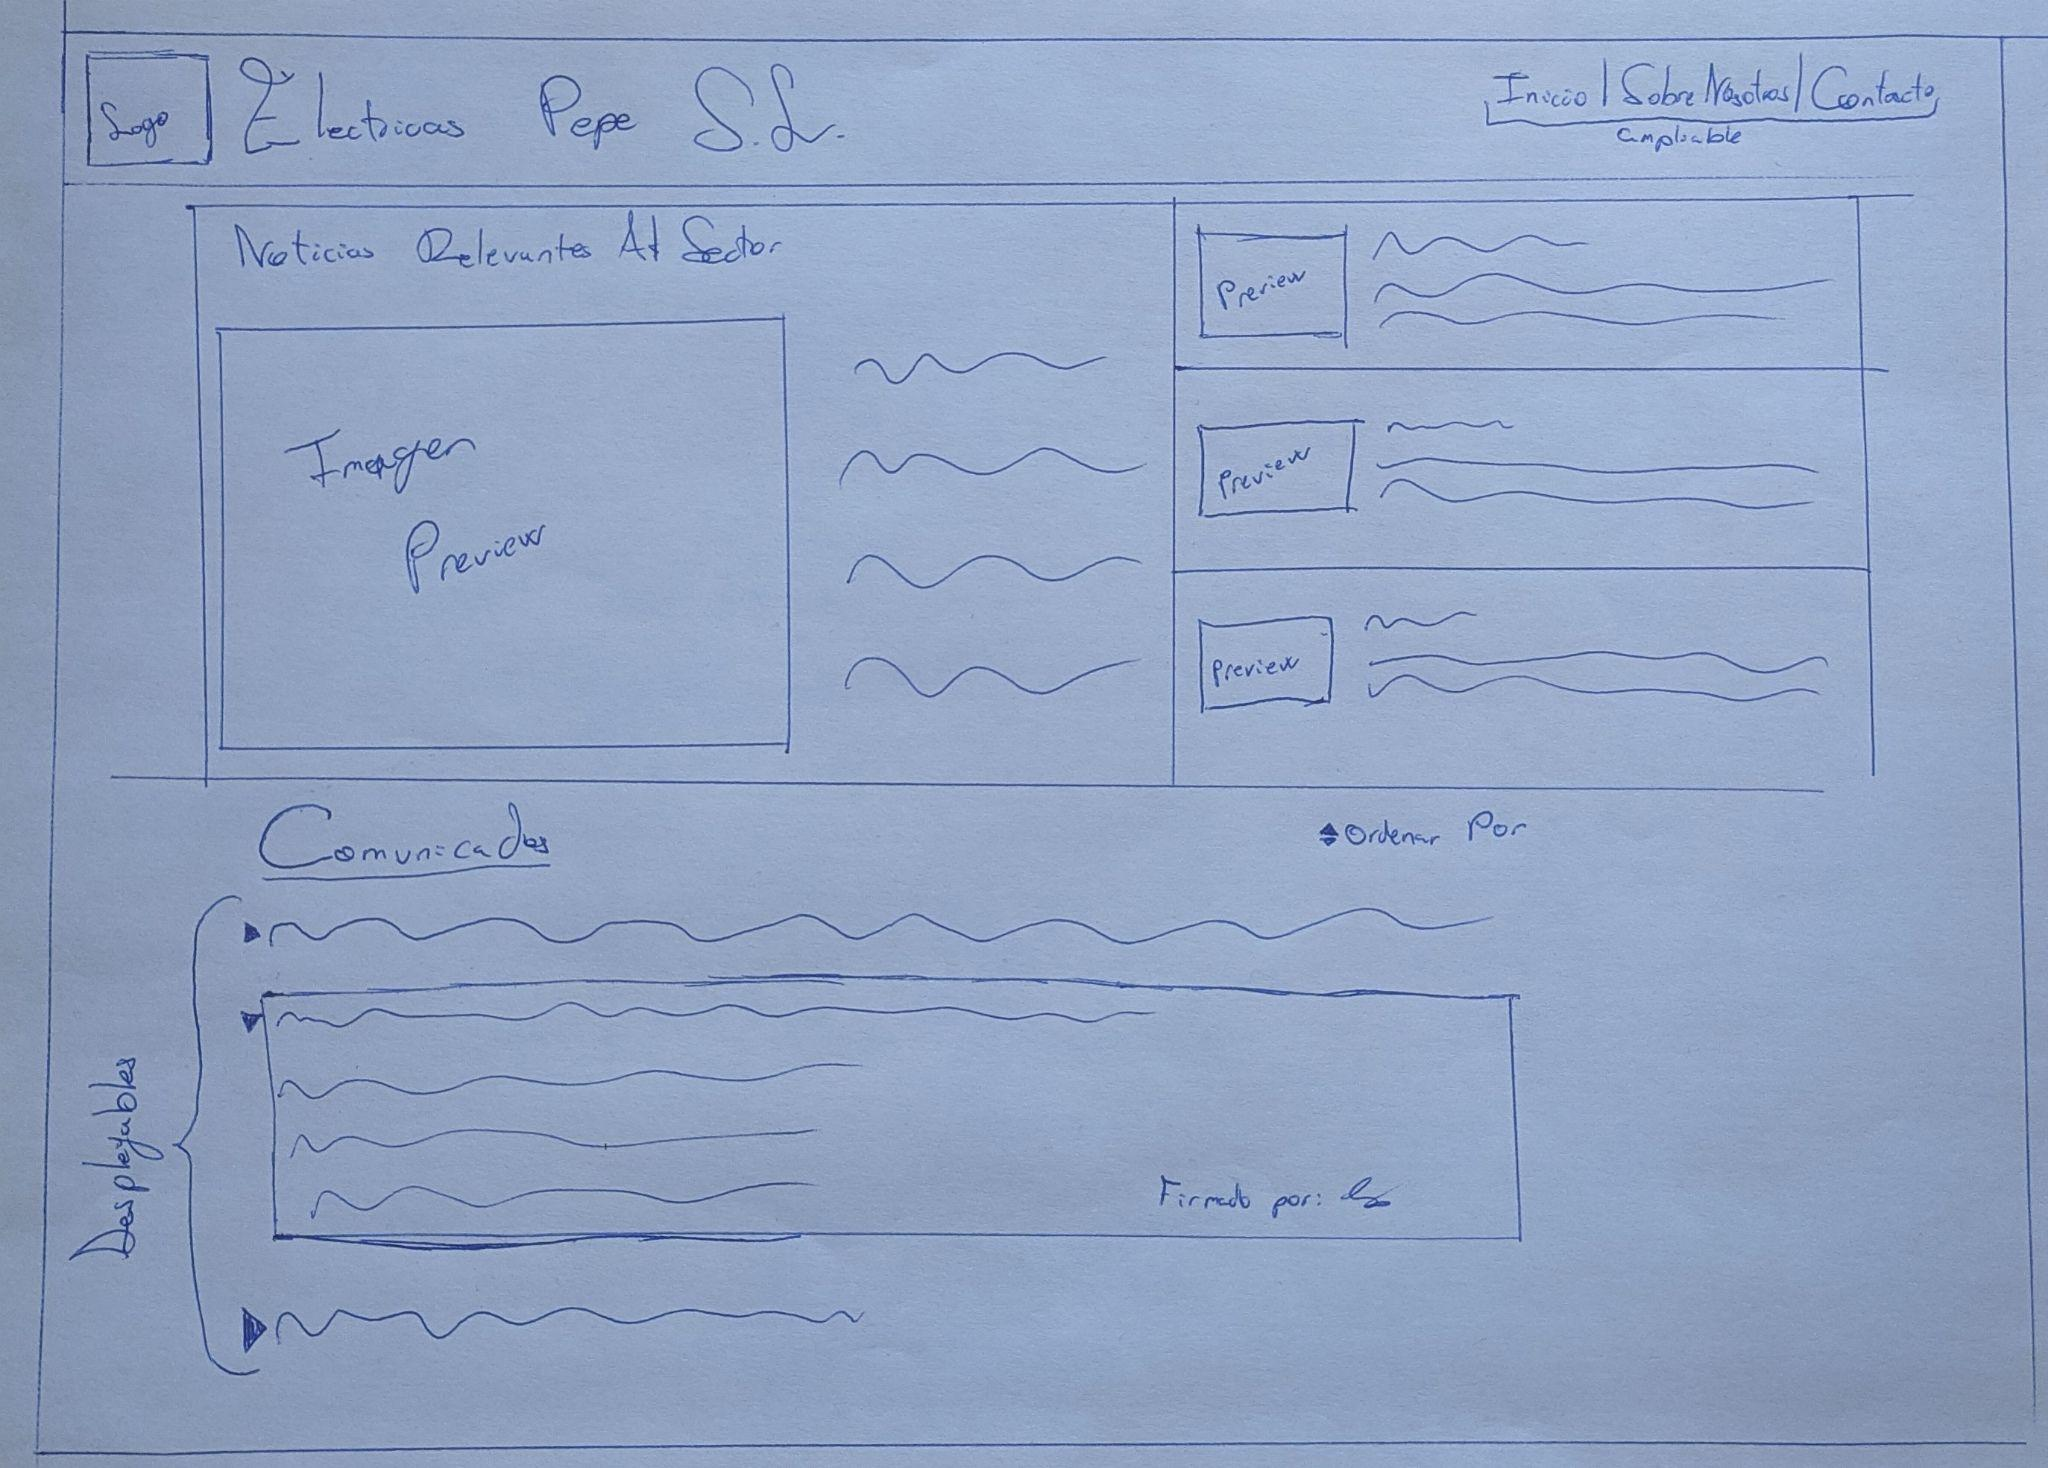 Logo
Électricas Pepe S.L.
Inicio | Sobre Nosotros | Contacto
ampliable
Noticias Relevantes Al Sector
Imagen
Preview
Preview
Preview
Preview
Comunicados
Ordenar Por
Desplegables
Firmado por: